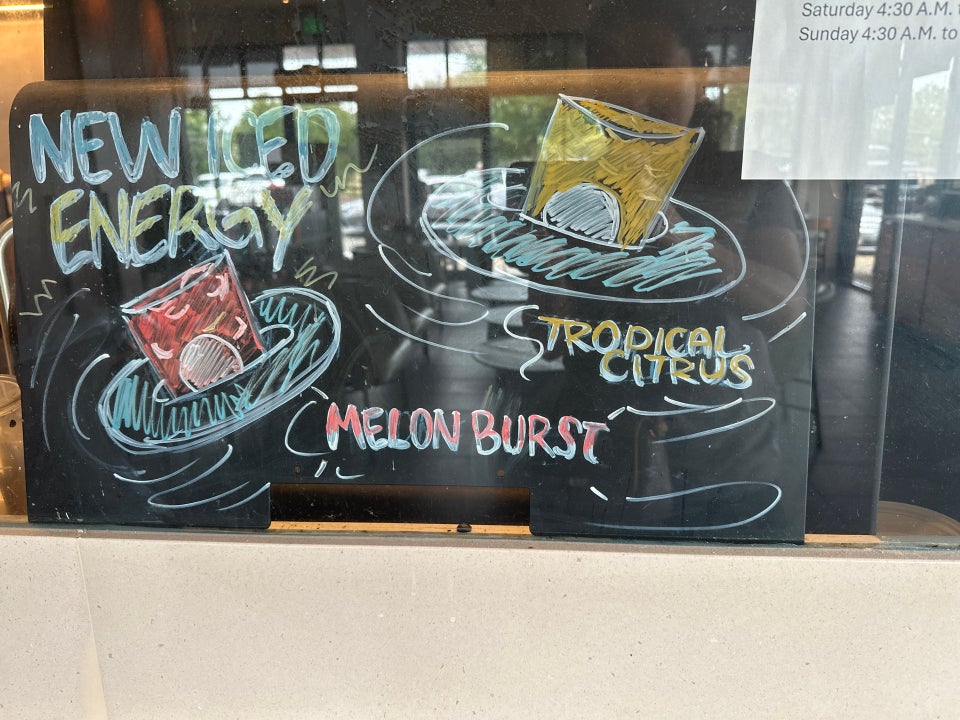 Saturday 4:30 A.M.
Sunday 4:30 A.M. to
NEW ICED
ENERGY
TROPICAL
CITRUS
MELON BURST